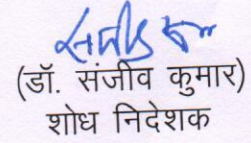 (डॉ. संजीव कुमार)
शोध निदेशक